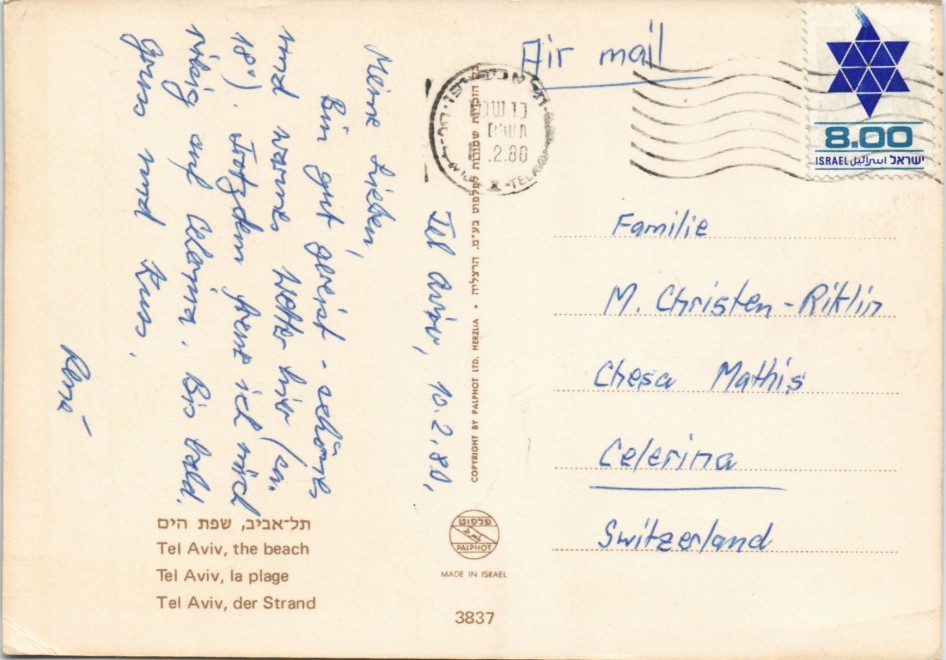 Air mail
8.00
ISRAEL اسرائيل ישראל
.2.80
Tel Aviv, 10.2.80,
Meine Lieben,
Bin gut gereist - schönes
und warmes Wetter hier (ca.
18°). Trotzdem freue ich mich
riesig auf Celerina. Bis bald.
Gruss und Kuss.
René
Familie
M. Christen-Riklin
Chesa Mathis
Celerina
Switzerland
COPYRIGHT BY PALPHOT LTD. HERZLIA • הזכויות שמורות לפלפוט בע"מ, הרצליה
תל-אביב, שפת הים
Tel Aviv, the beach
Tel Aviv, la plage
Tel Aviv, der Strand
פלפוט
PALPHOT
MADE IN ISRAEL
3837